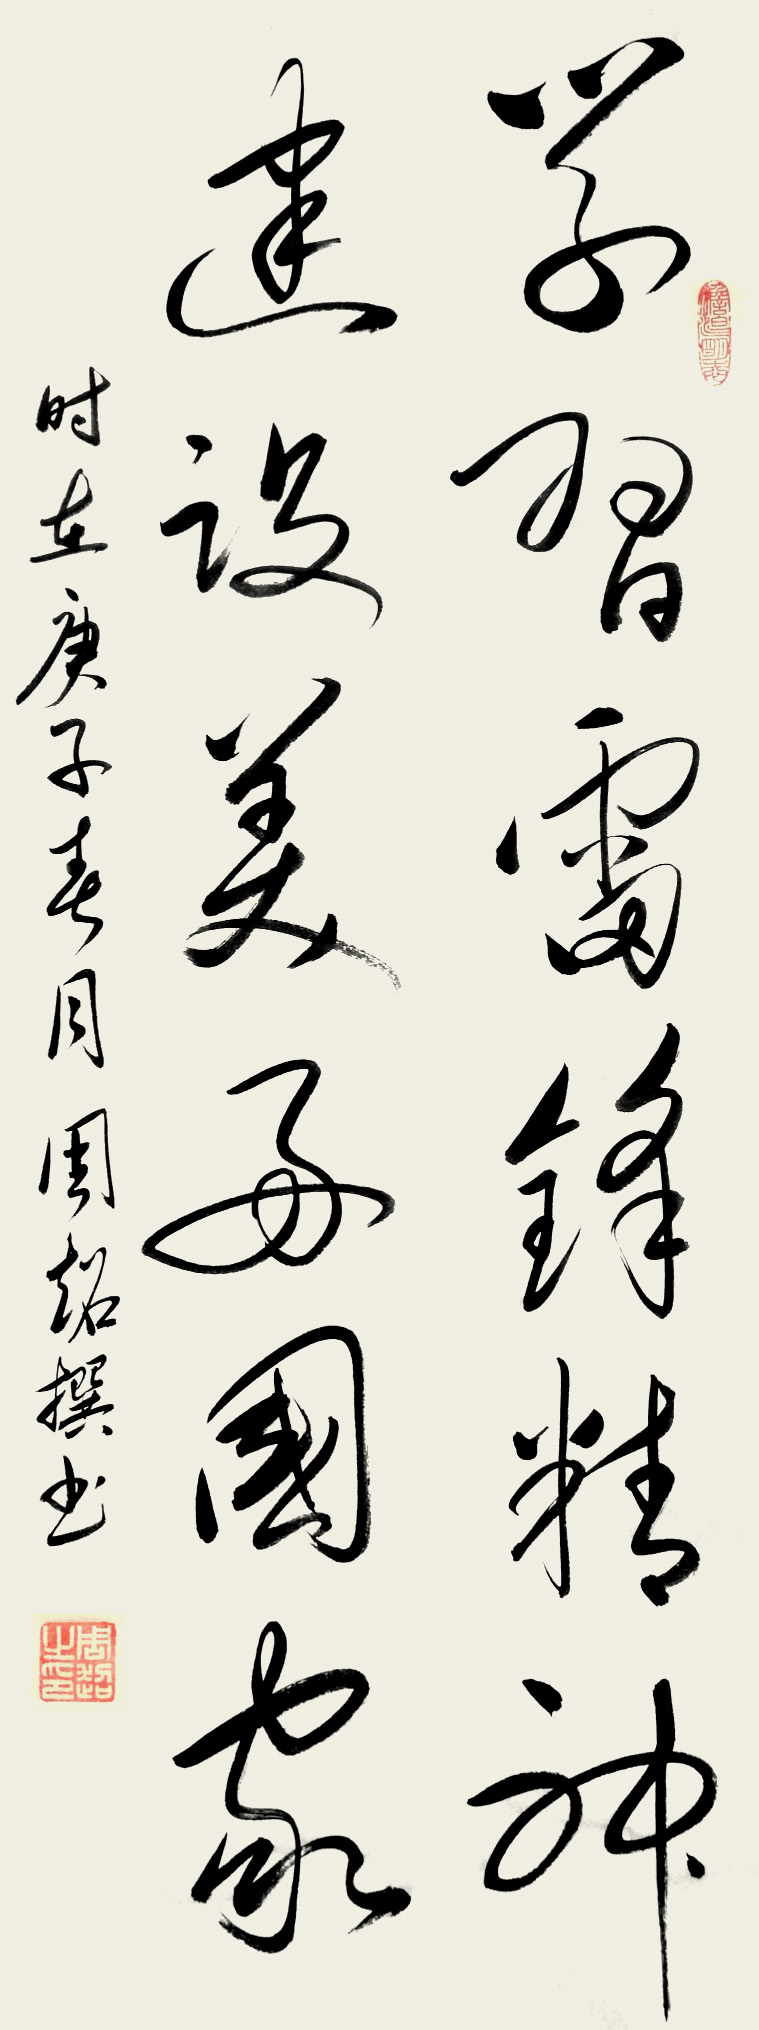 学习雷锋精神
建设美好国家
时在庚子春月周超撰书
周超之印